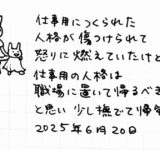 仕事用につくられた
人格が傷つけられて
怒りに燃えていたけど
仕事用の人格は
職場に置いて帰るべき
と思い 少し撫でて帰宅
2025年6月20日